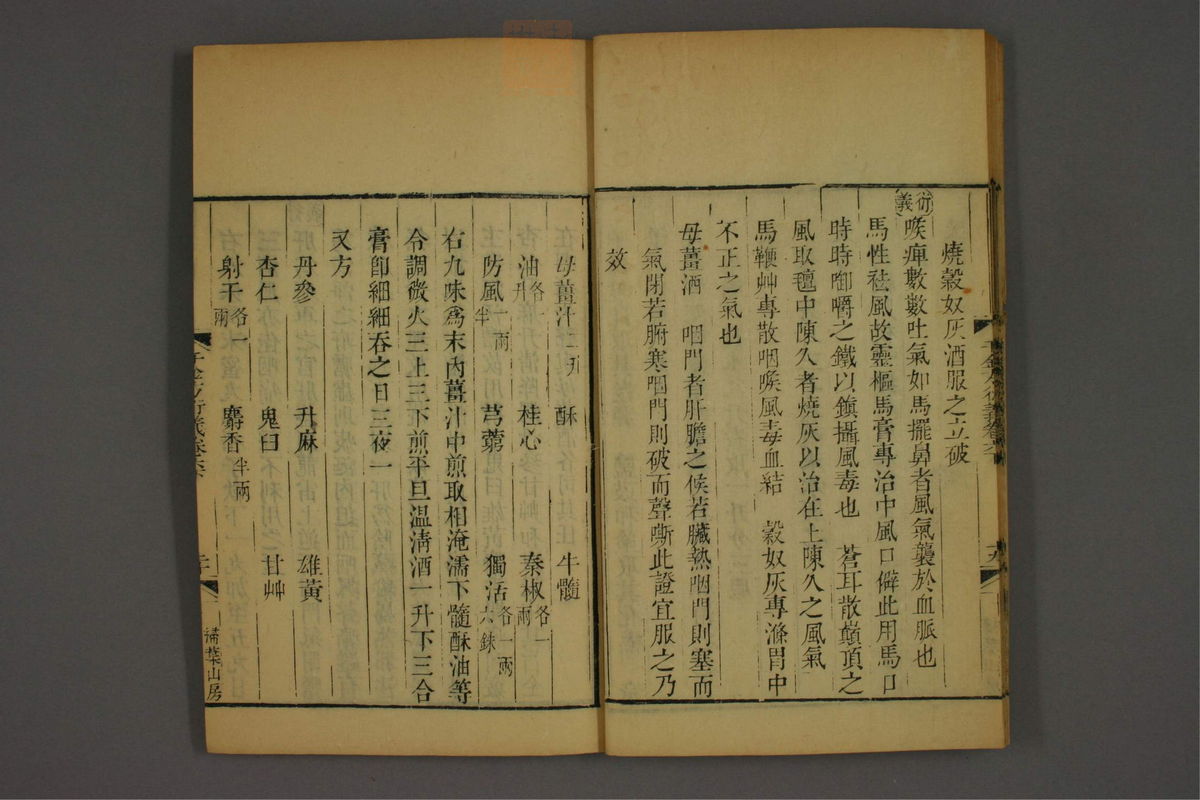 燒穀奴灰酒服之立破
衍義
喉痺數數吐氣如馬擺鼻者風氣襲於血脈也
馬性祛風故靈樞馬膏專治中風口僻此用馬口
時時啣嚼之鐵以鎭攝風毒也 蒼耳散巔頂之
風取氊中陳久者燒灰以治在上陳久之風氣
馬鞭艸專散咽喉風毒血結 穀奴灰專滌胃中
不正之氣也
母薑酒 咽門者肝膽之候若臟熱咽門則塞而
氣閉若腑寒咽門則破而聲嘶此證宜服之乃
效
母薑汁二升 酥 牛髓
油各一升 桂心 秦椒各一兩
防風一兩半 芎藭 獨活各一兩六銖
右九味爲末內薑汁中煎取相淹濡下髓酥油等
令調微火三上三下煎平旦溫淸酒一升下三合
膏卽細細吞之日三夜一
又方
丹參 升麻 雄黃
杏仁 鬼臼 甘艸
射干各一兩 麝香半兩
千金方衍義卷六
掃葉山房